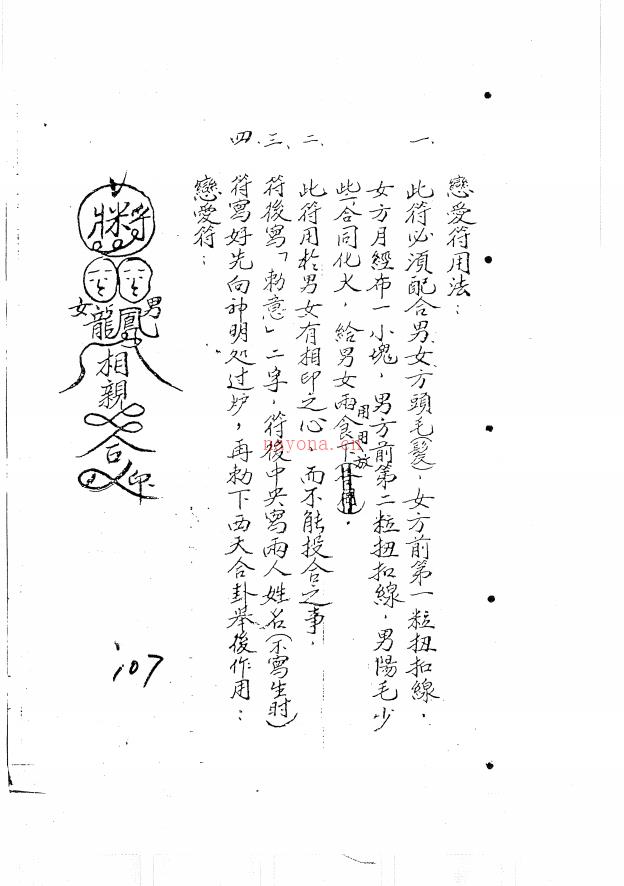 戀愛符用法：
一、此符必須配合男女方頭毛（髮），女方前第一粒扭扣線，
女方月經布一小塊，男方前第二粒扭扣線，男陽毛少
些合同化火，給男女兩食
用用放
二、此符用於男女有相印之心，而不能投合之事，
三、符後寫「勅意」二字，符後中央寫兩人姓名（不寫生时）
四、符寫好先向神明処过炉，再勅下西天合卦举後作用：
戀愛符：
男
女
鳳
龍
相親
合
印
107
nayona.cn